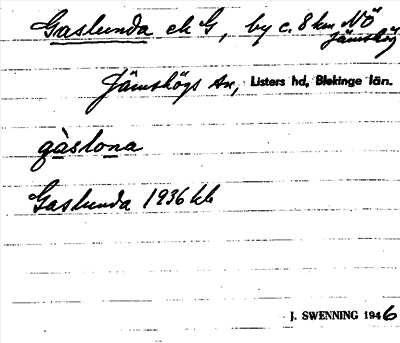 Gaslunda ek G, by c. 8 km NÖ
Jämshög
Jämshögs sn, Listers hd, Blekinge län.
gàslona
Gaslunda 1936 kb
J. SWENNING 1946